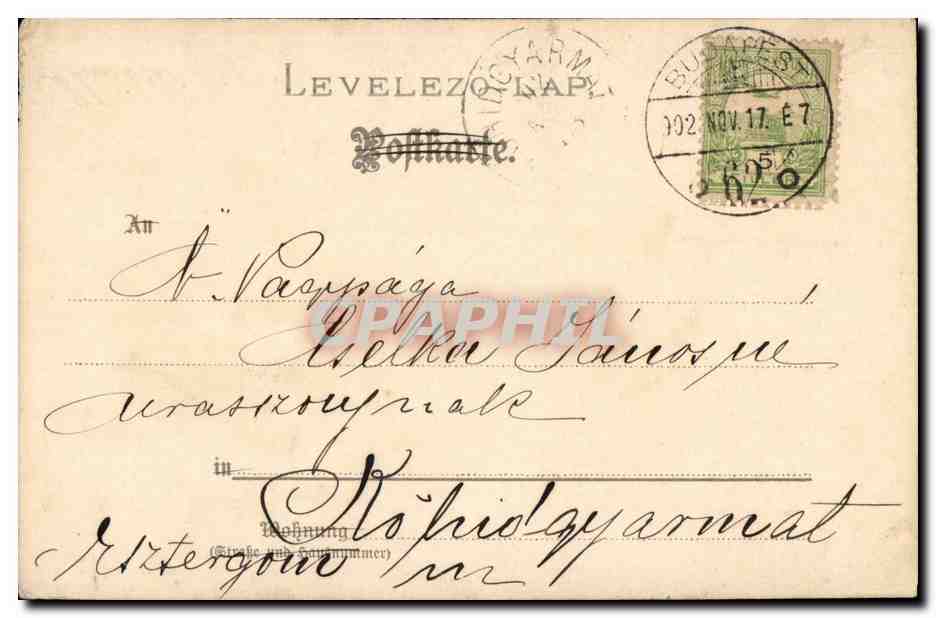 LEVELEZO-LAP.
Postkarte.
BUDAPEST
902. NOV. 17. É 7
62
5
An
Nagysága
János né
uraszonynak
in Kőhidgyarmat
Wohnung
(Straße und Hausnummer)
Esztergom m
CPAPHIL